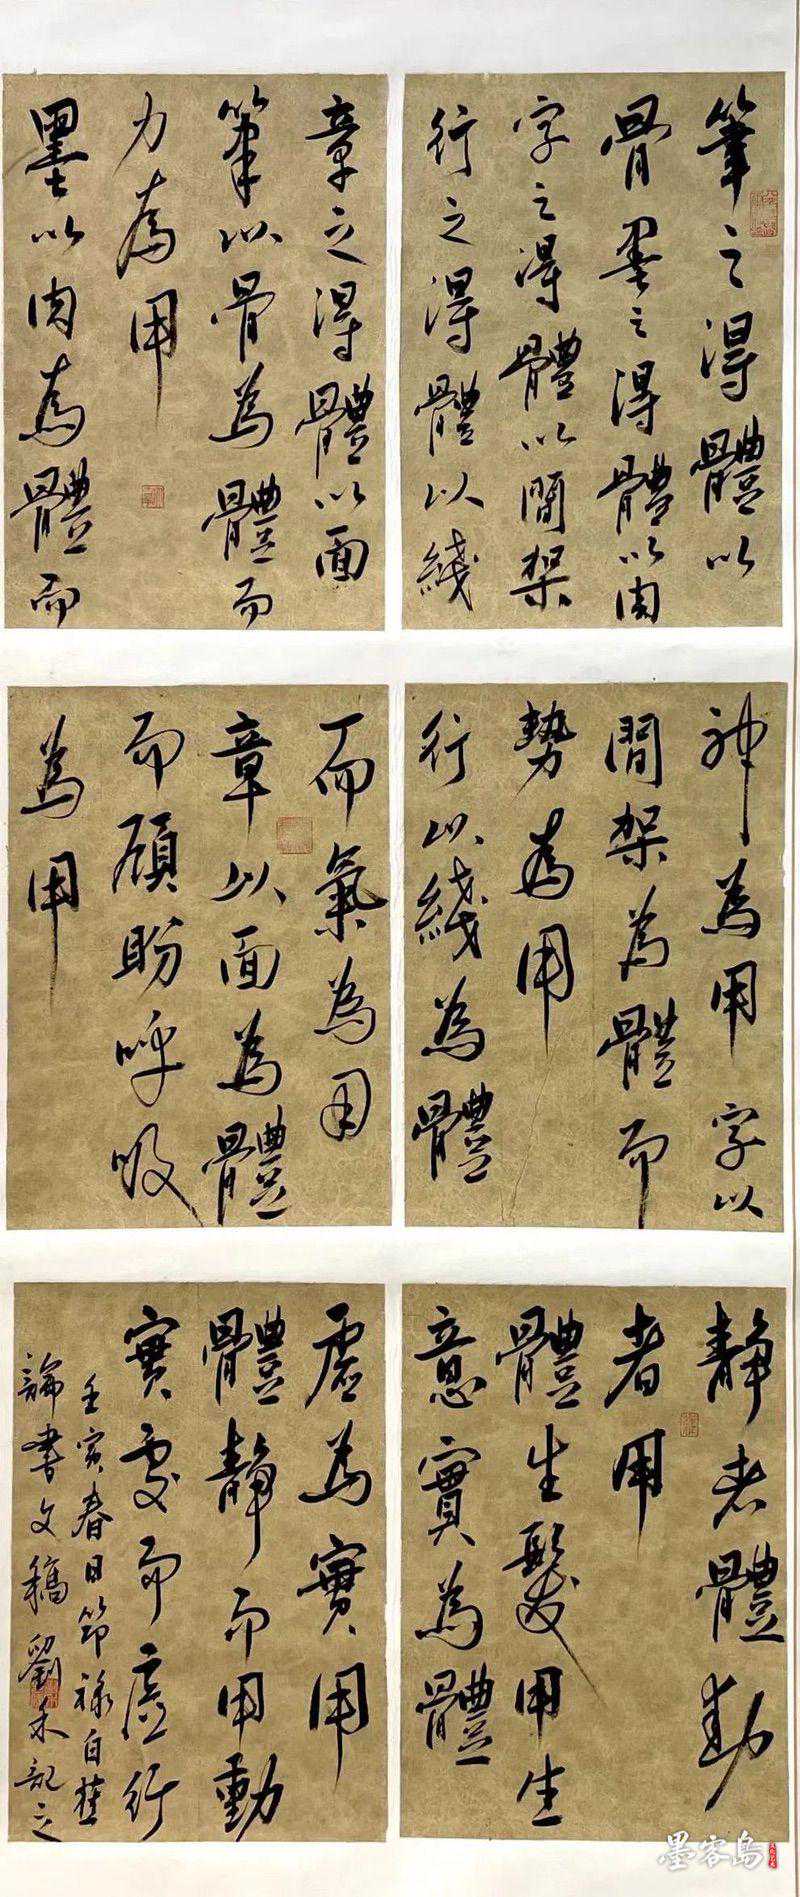 筆之得體以
骨墨之得體以肉
字之得體以間架
行之得體以綫
章之得體以面
筆以骨為體而
力為用
墨以肉為體而
神為用字以
間架為體而
勢為用
行以綫為體
而氣為用
章以面為體
而顧盼呼吸
為用
靜者體動
者用
體生髮用生
意實為體
虛為實用
體靜而用動
實處而虛行
壬寅春日節祿自舊
論書文稿劉木記之
墨客島